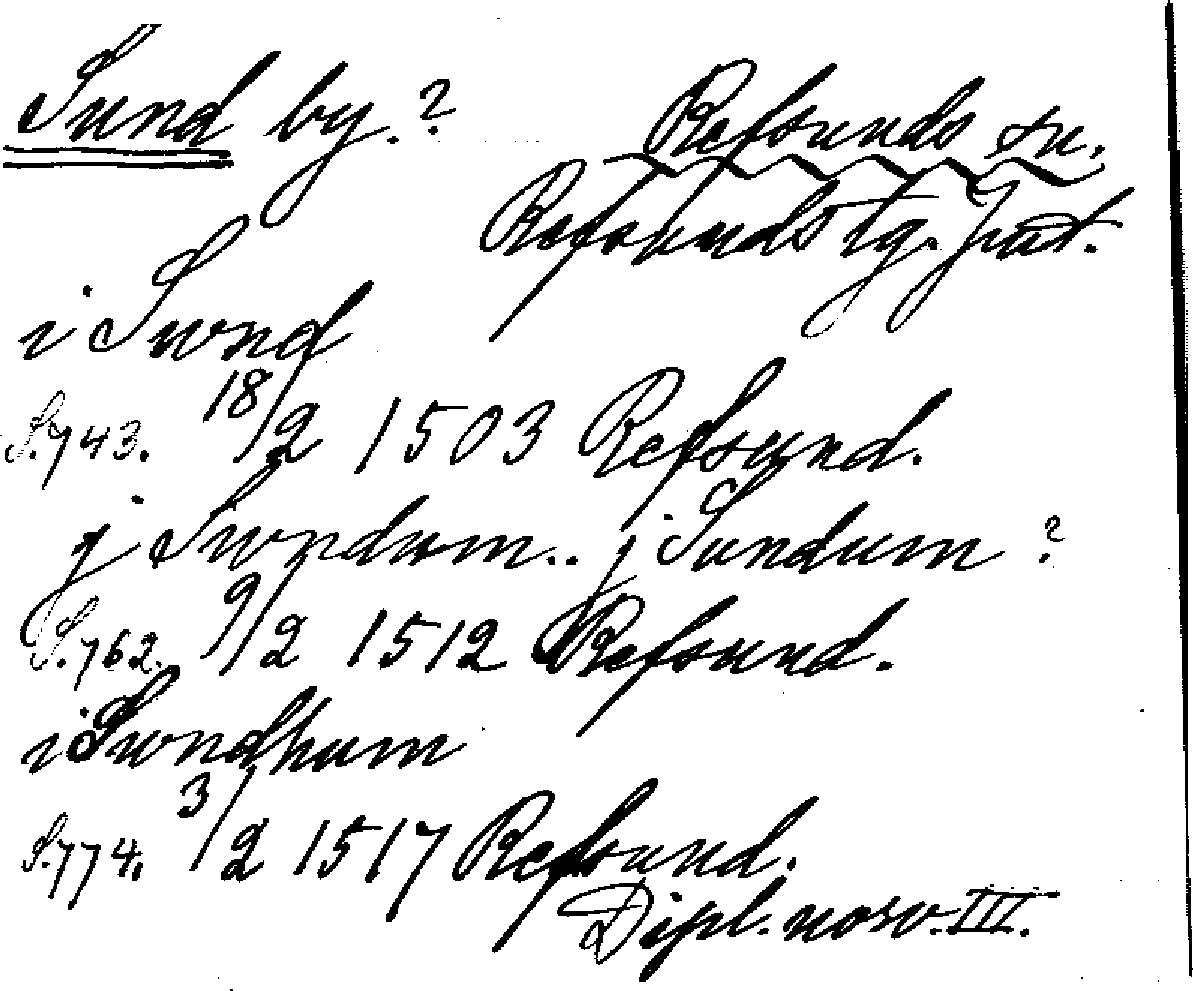 Sund by.? Refsunds sn.
Refsunds tg. Jmt.
i Swnd
S.743. 18/2 1503 Refsund.
j Swndom.. j Sundum ?
S.762. 9/2 1512 Refsund.
i Swndhum
S.774. 3/2 1517 Refsund.
Dipl. norv. III.